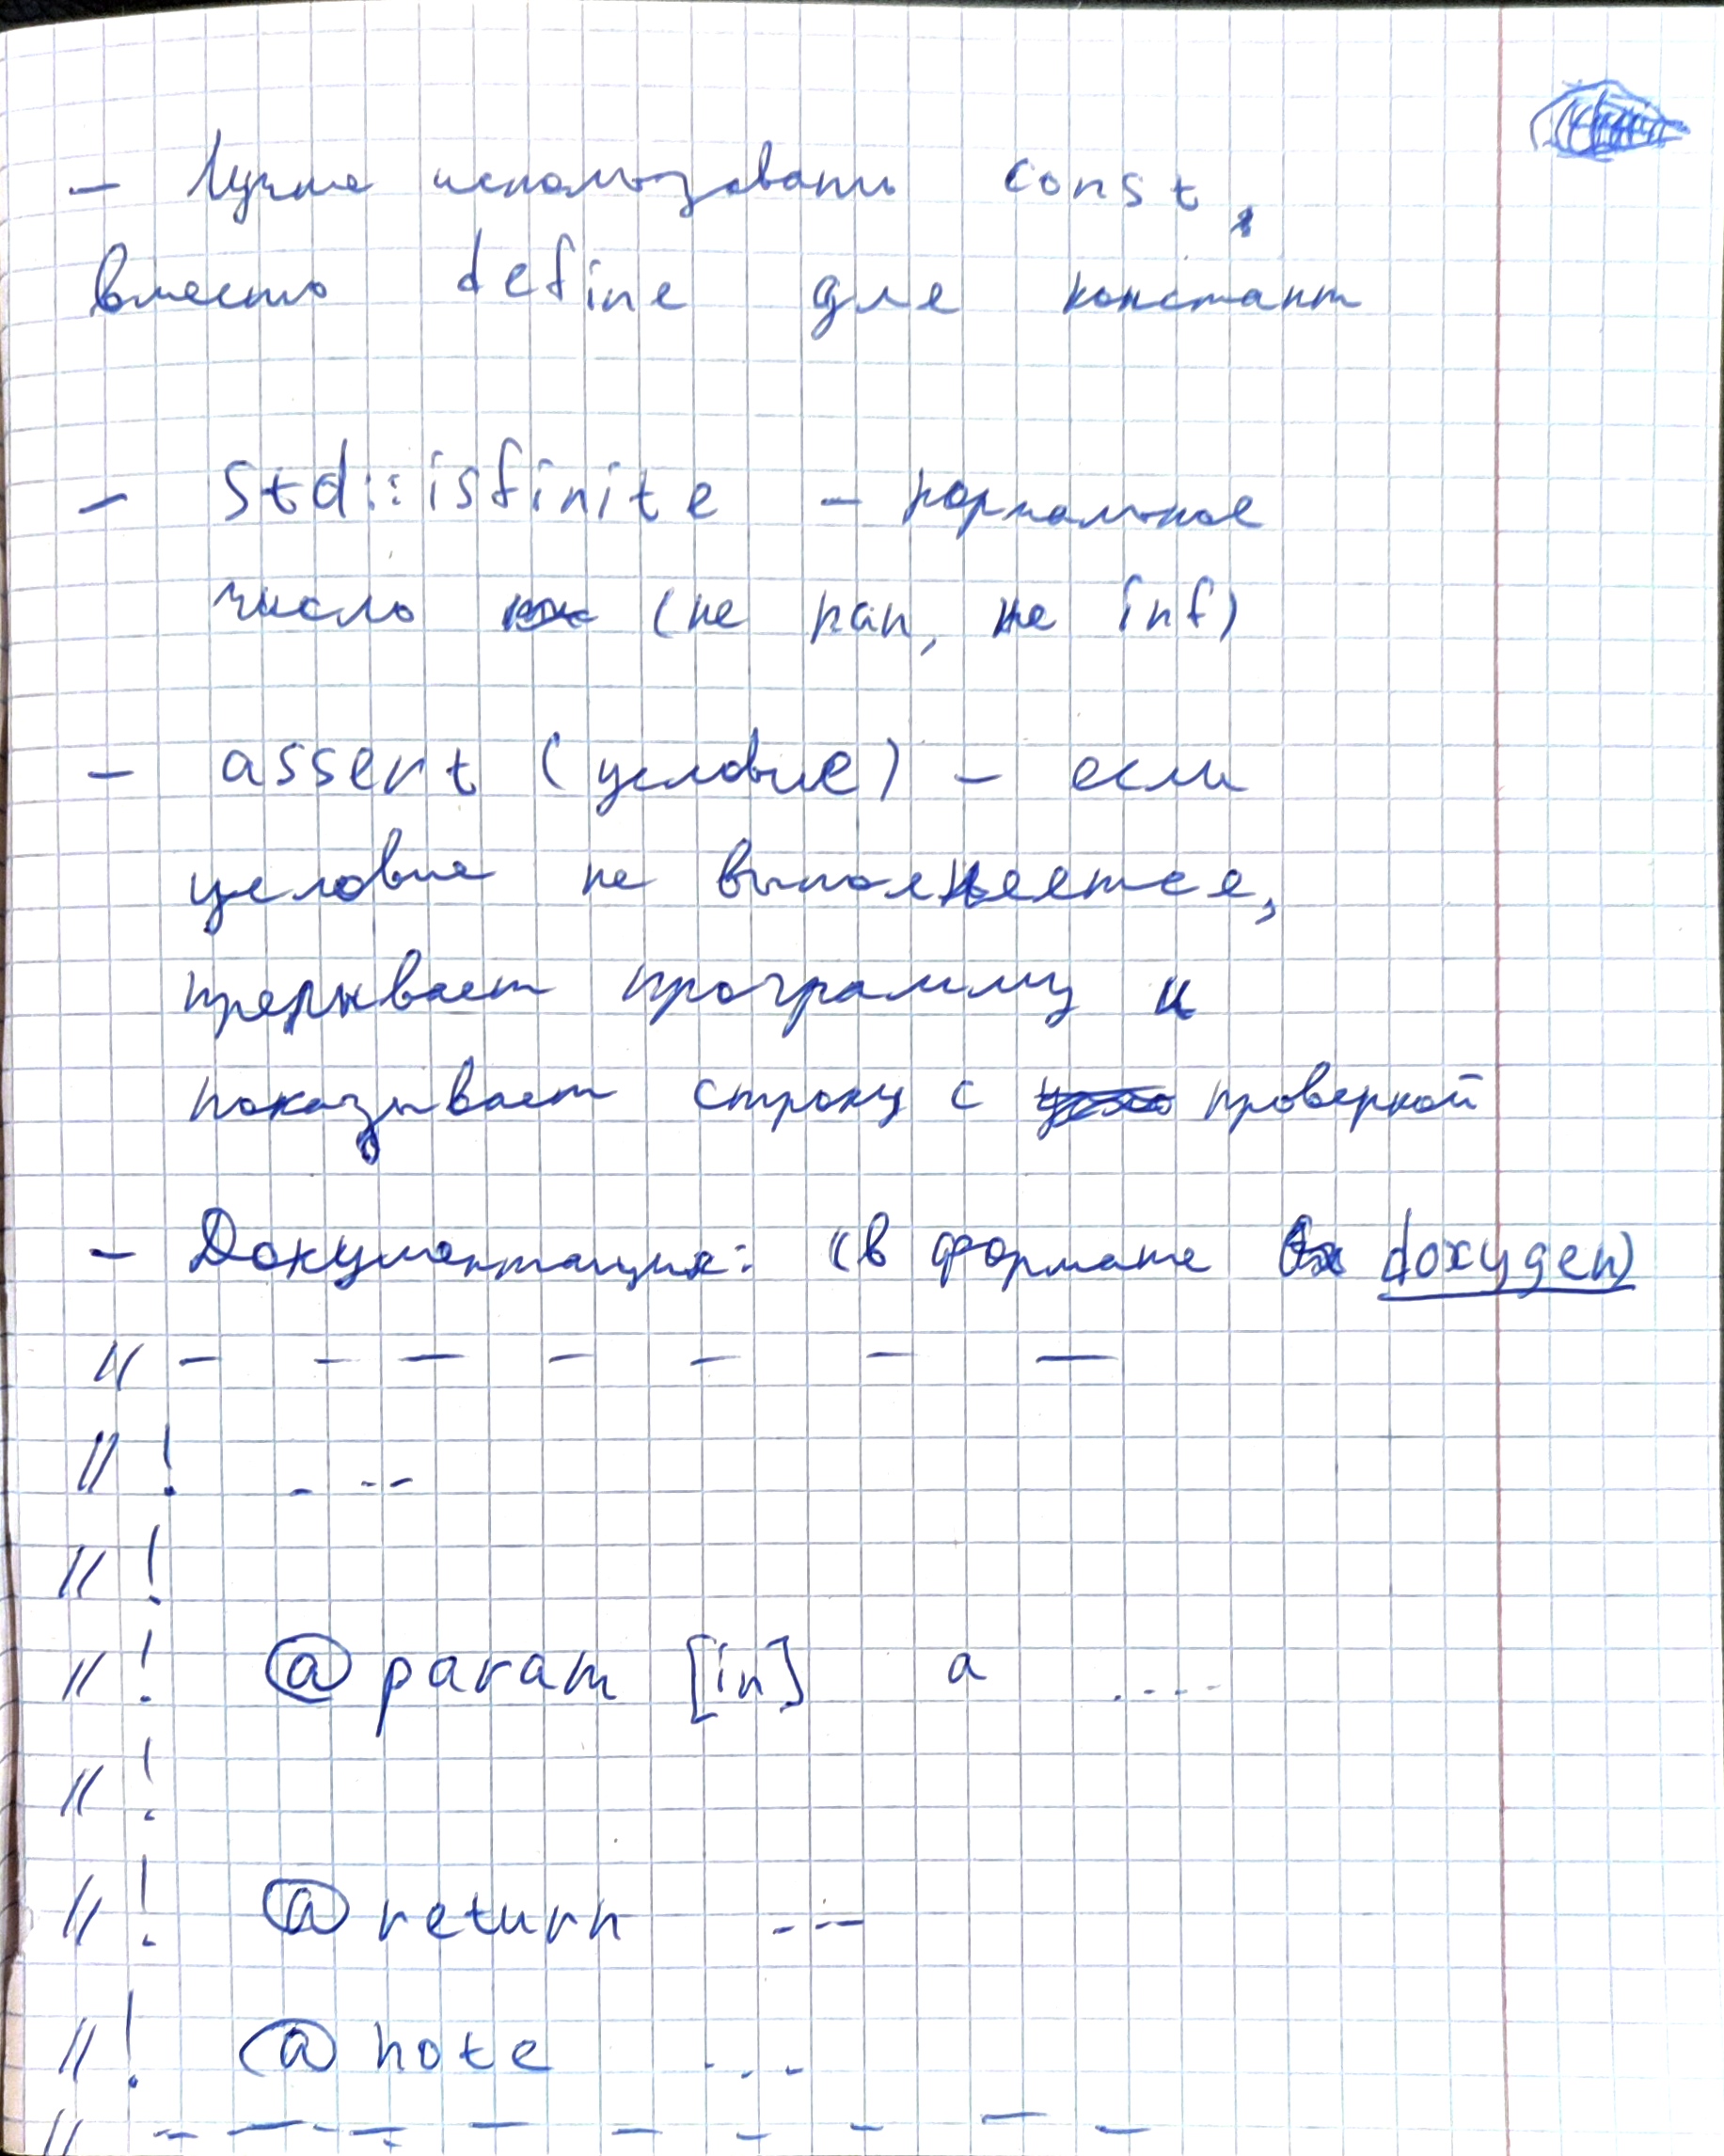 - Лучше использовать const,
вместо define для констант
- std::isfinite - нормальное
число (не nan, не inf)
- assert (условие) - если
условие не выполняется,
прерывает программу и
показывает строку с проверкой
- Документация: (в формате doxygen)
// - - - - - - -
//! ...
//!
//! @param [in] a ....
//!
//! @return ...
//! @note ...
// - - - - - - - -